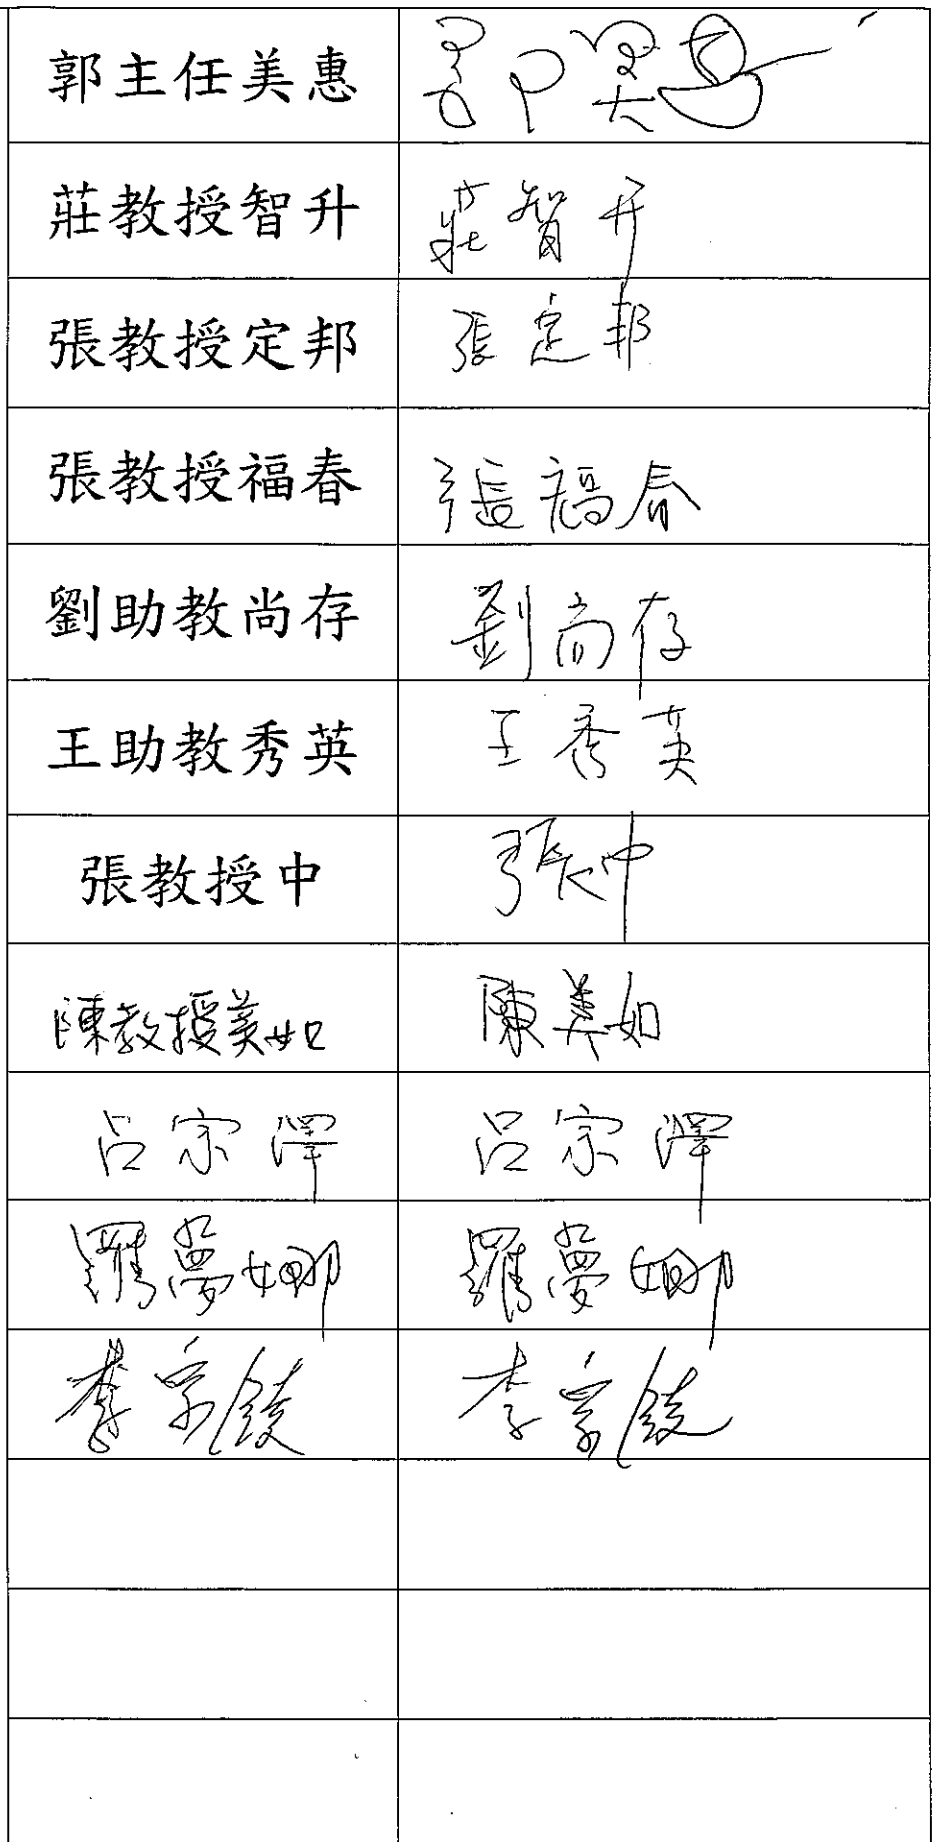 郭主任美惠 郭美惠
莊教授智升 莊智升
張教授定邦 張定邦
張教授福春 張福春
劉助教尚存 劉尚存
王助教秀英 王秀英
張教授中 張中
陳教授美如 陳美如
呂宗澤 呂宗澤
羅夢娜 羅夢娜
李宗錂 李宗錂